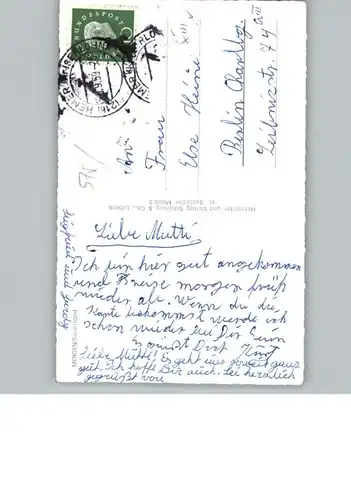 DEUTSCHE BUNDESPOST
(21b) HEMER
An
Frau
Else Heine
Berlin Charlbg.
Leibnizstr. 74
Hersteller und Verlag Schöning & Co., Lübeck
Bestellnr.
Liebe Mutti!
Ich bin hier gut angekommen
und Reise morgen früh
wieder ab. Wenn du die
Karte bekommst werde ich
schon wieder bei Dir sein
Es grüsst Dich
Liebe Mutti! Es geht uns soweit ganz
gut. Ich hoffe Dir auch. Sei herzlich
gegrüßt von
Siegfried und